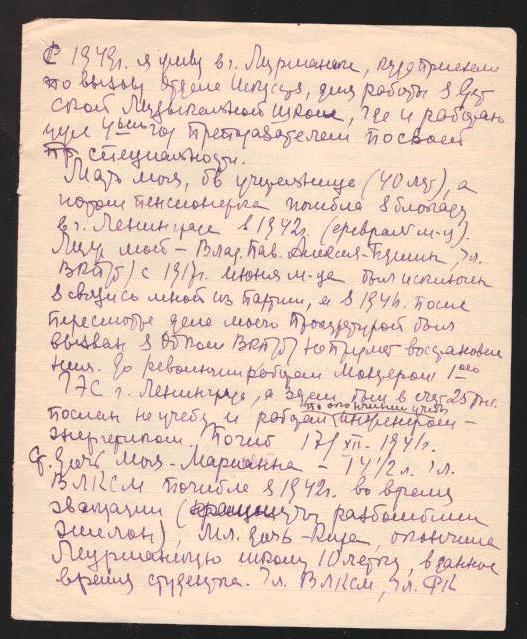 С 1949г. я живу в г. Мурманске, куда приехала
по вызову Отдела Искусств, для работы в Дет
ской Музыкальной Школе, где и работаю
уже 4ый год преподавателем по своей
специальности.
Мать моя, б. учительница (40 лет), а
потом пенсионерка погибла в блокаду
в г. Ленинграде в 1942г. (февраля м-ц).
Муж мой – Влад. Пав. чл.
ВКП(б) с 1917г. июня м-ца был исключен
в связи со мной из партии, и в 1940г. после
пересмотра дела моего Прокуратурой был
вызван в Обком ВКП(б) на предмет восстановле
ния. До революции работал монтером 1ой
ГЭС г. Ленинграда, а затем был в счет 25 тыс.
послан на учебу и работал по окончании учебы инженером –
энергетиком. Погиб 17/XII – 1941г.
Ст. дочь моя – Марианна – 14 1/2 л. чл.
ВЛКСМ погибла в 1942г. во время
эвакуации (разбомбили
эшелон), Мл. дочь – окончила
Мурманскую школу 10летку, в данное
время студентка. Чл. ВЛКСМ, чл. ФК